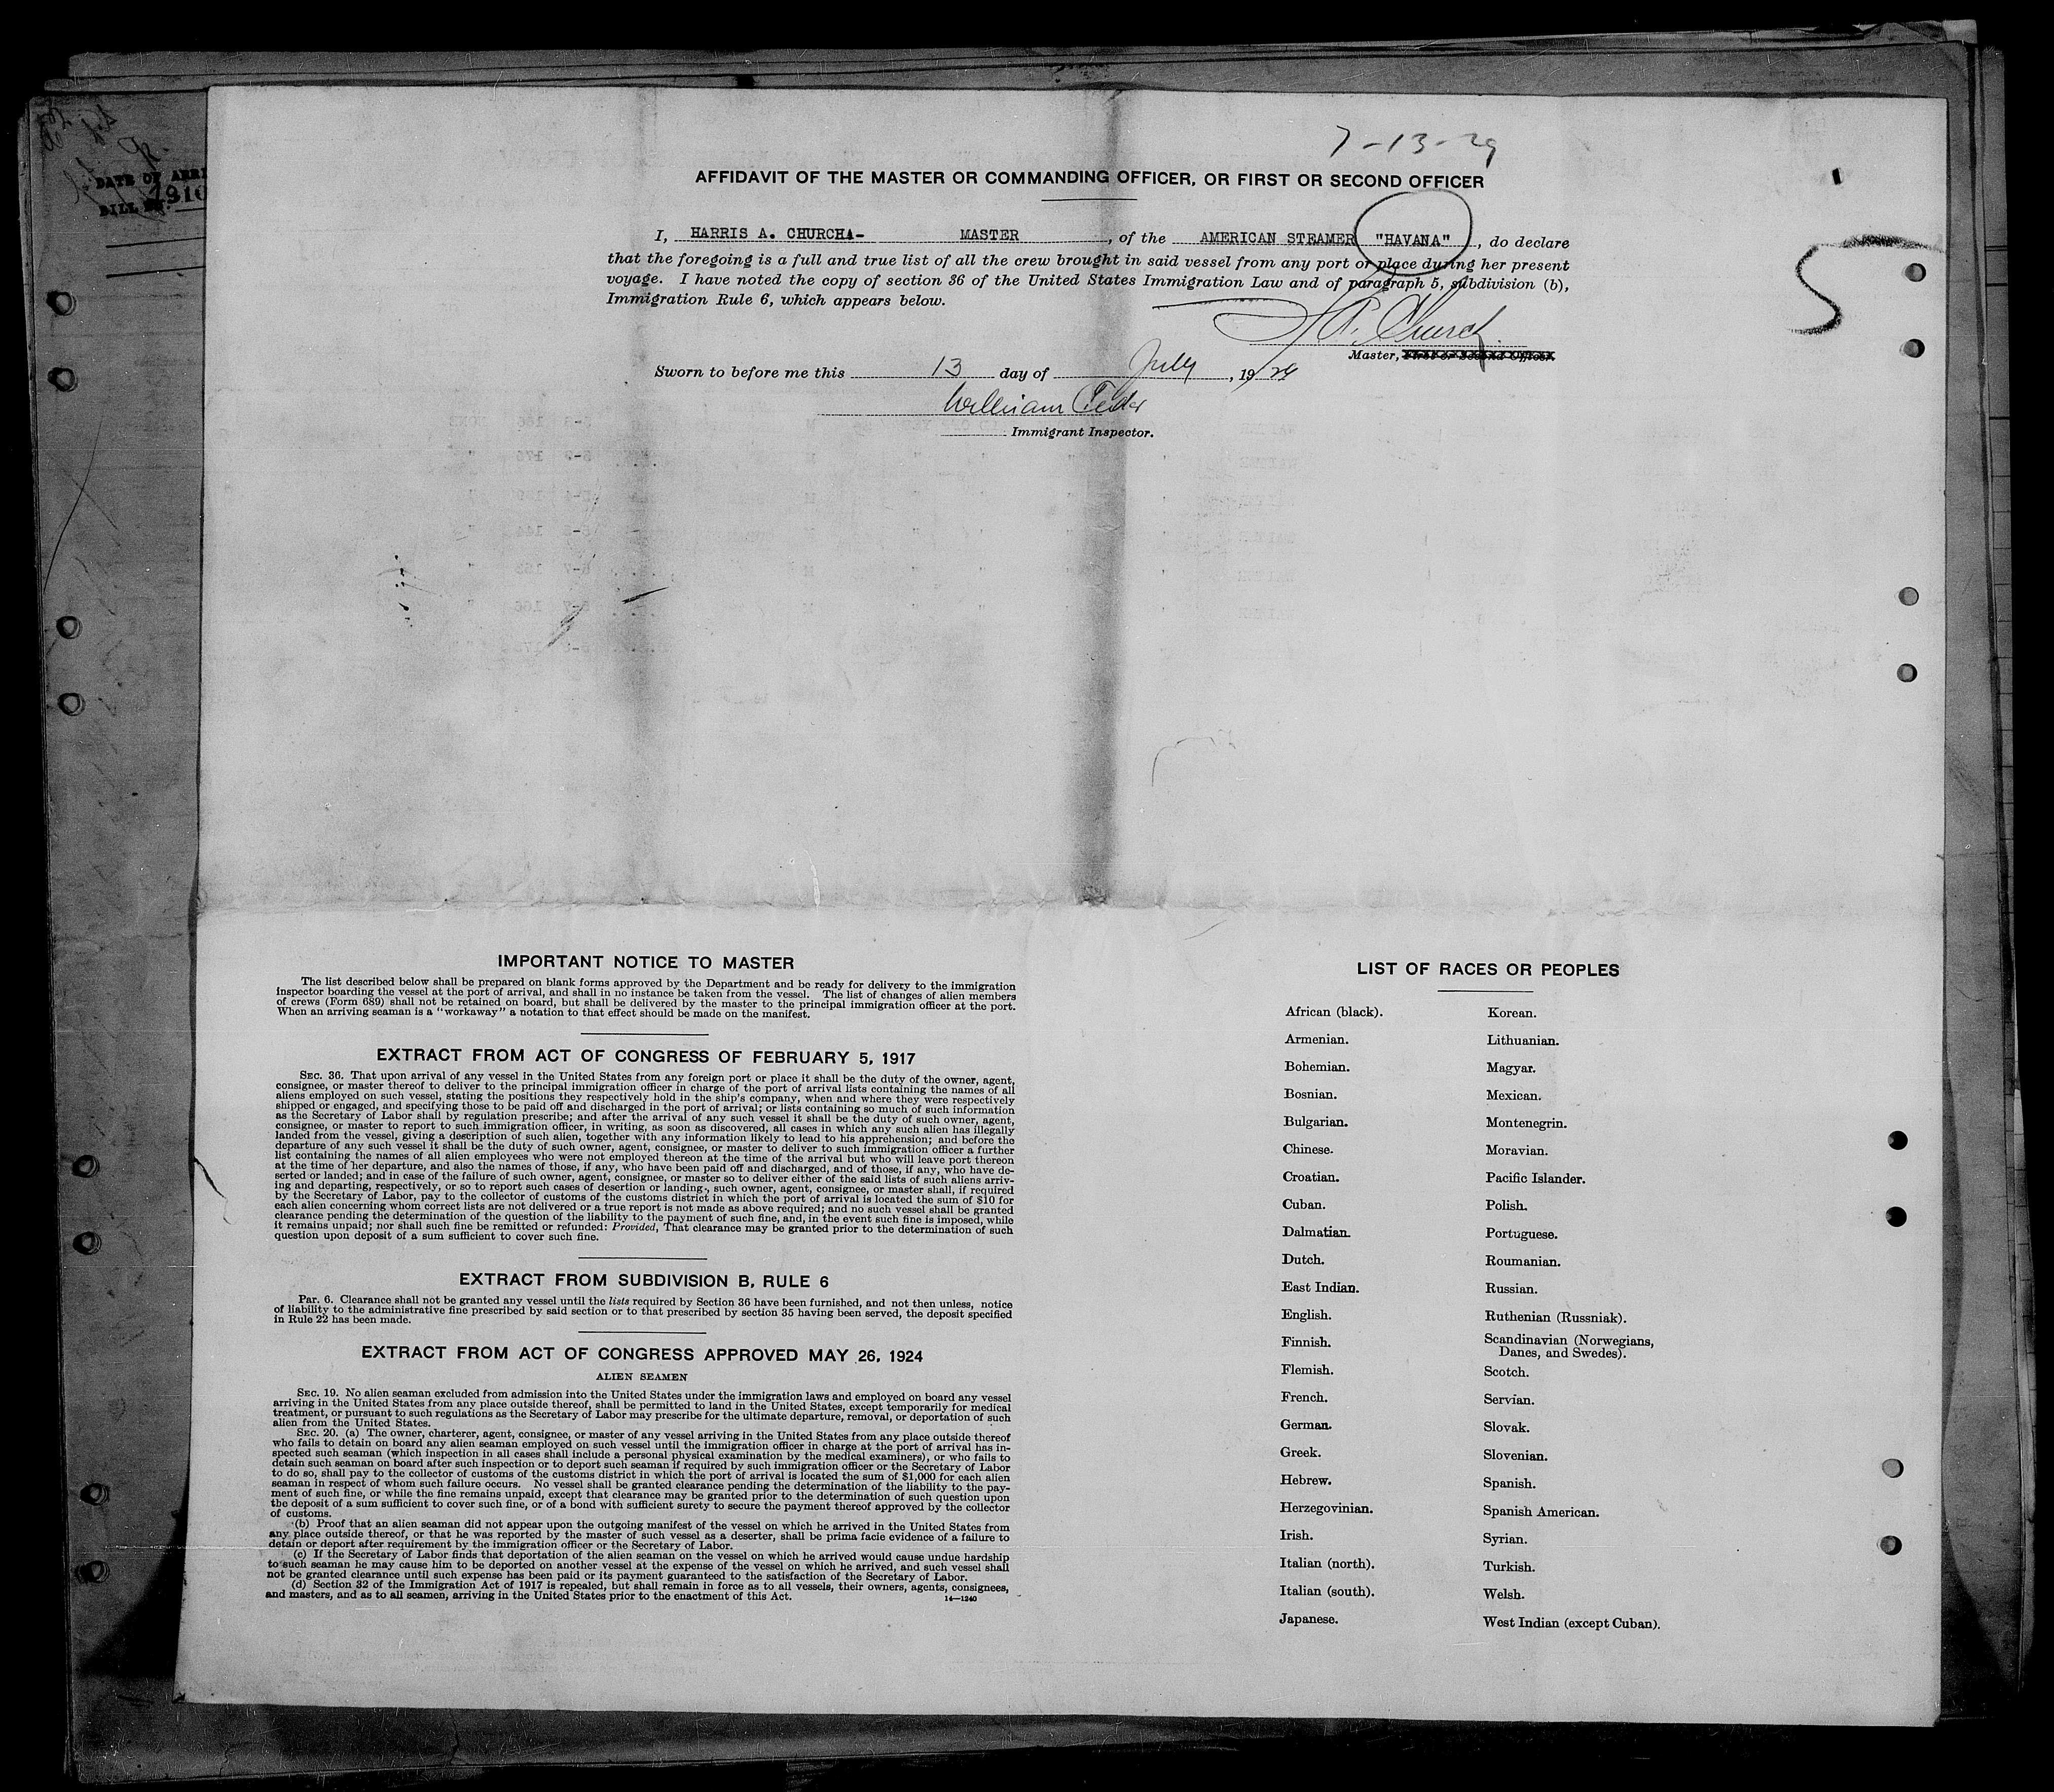 7-13-29
DATE OF ARRI
BILL
AFFIDAVIT OF THE MASTER OR COMMANDING OFFICER, OR FIRST OR SECOND OFFICER
5
I, HARRIS A. CHURCHA- MASTER, of the AMERICAN STEAMER "HAVANA", do declare
that the foregoing is a full and true list of all the crew brought in said vessel from any port or place during her present
voyage. I have noted the copy of section 36 of the United States Immigration Law and of paragraph 5, subdivision (b),
Immigration Rule 6, which appears below.
H.A. Church
Master, First or Second Officer.
Sworn to before me this 13 day of July, 1929
William
Immigrant Inspector.
IMPORTANT NOTICE TO MASTER
The list described below shall be prepared on blank forms approved by the Department and be ready for delivery to the immigration
inspector boarding the vessel at the port of arrival, and shall in no instance be taken from the vessel. The list of changes of alien members
of crews (Form 689) shall not be retained on board, but shall be delivered by the master to the principal immigration officer at the port.
When an arriving seaman is a "workaway" a notation to that effect should be made on the manifest.
EXTRACT FROM ACT OF CONGRESS OF FEBRUARY 5, 1917
SEC. 36. That upon arrival of any vessel in the United States from any foreign port or place it shall be the duty of the owner, agent,
consignee, or master thereof to deliver to the principal immigration officer in charge of the port of arrival lists containing the names of all
aliens employed on such vessel, stating the positions they respectively hold in the ship's company, when and where they were respectively
shipped or engaged, and specifying those to be paid off and discharged in the port of arrival; or lists containing so much of such information
as the Secretary of Labor shall by regulation prescribe; and after the arrival of any such vessel it shall be the duty of such owner, agent,
consignee, or master to report to such immigration officer, in writing, as soon as discovered, all cases in which any such alien has illegally
landed from the vessel, giving a description of such alien, together with any information likely to lead to his apprehension; and before the
departure of any such vessel it shall be the duty of such owner, agent, consignee, or master to deliver to such immigration officer a further
list containing the names of all alien employees who were not employed thereon at the time of the arrival but who will leave port thereon
at the time of her departure, and also the names of those, if any, who have been paid off and discharged, and of those, if any, who have de-
serted or landed; and in case of the failure of such owner, agent, consignee, or master so to deliver either of the said lists of such aliens arriv-
ing and departing, respectively, or so to report such cases of desertion or landing, such owner, agent, consignee, or master shall, if required
by the Secretary of Labor, pay to the collector of customs of the customs district in which the port of arrival is located the sum of $10 for
each alien concerning whom correct lists are not delivered or a true report is not made as above required; and no such vessel shall be granted
clearance pending the determination of the question of the liability to the payment of such fine, and, in the event such fine is imposed, while
it remains unpaid; nor shall such fine be remitted or refunded: Provided, That clearance may be granted prior to the determination of such
question upon deposit of a sum sufficient to cover such fine.
EXTRACT FROM SUBDIVISION B, RULE 6
PAR. 6. Clearance shall not be granted any vessel until the lists required by Section 36 have been furnished, and not then unless, notice
of liability to the administrative fine prescribed by said section or to that prescribed by section 35 having been served, the deposit specified
in Rule 22 has been made.
EXTRACT FROM ACT OF CONGRESS APPROVED MAY 26, 1924
ALIEN SEAMEN
SEC. 19. No alien seaman excluded from admission into the United States under the immigration laws and employed on board any vessel
arriving in the United States from any place outside thereof, shall be permitted to land in the United States, except temporarily for medical
treatment, or pursuant to such regulations as the Secretary of Labor may prescribe for the ultimate departure, removal, or deportation of such
alien from the United States.
SEC. 20. (a) The owner, charterer, agent, consignee, or master of any vessel arriving in the United States from any place outside thereof
who fails to detain on board any alien seaman employed on such vessel until the immigration officer in charge at the port of arrival has in-
spected such seaman (which inspection in all cases shall include a personal physical examination by the medical examiners), or who fails to
detain such seaman on board after such inspection or to deport such seaman if required by such immigration officer or the Secretary of Labor
to do so, shall pay to the collector of customs of the customs district in which the port of arrival is located the sum of $1,000 for each alien
seaman in respect of whom such failure occurs. No vessel shall be granted clearance pending the determination of the liability to the pay-
ment of such fine, or while the fine remains unpaid, except that clearance may be granted prior to the determination of such question upon
the deposit of a sum sufficient to cover such fine, or of a bond with sufficient surety to secure the payment thereof approved by the collector
of customs.
(b) Proof that an alien seaman did not appear upon the outgoing manifest of the vessel on which he arrived in the United States from
any place outside thereof, or that he was reported by the master of such vessel as a deserter, shall be prima facie evidence of a failure to
detain or deport after requirement by the immigration officer or the Secretary of Labor.
(c) If the Secretary of Labor finds that deportation of the alien seaman on the vessel on which he arrived would cause undue hardship
to such seaman he may cause him to be deported on another vessel at the expense of the vessel on which he arrived, and such vessel shall
not be granted clearance until such expense has been paid or its payment guaranteed to the satisfaction of the Secretary of Labor.
(d) Section 32 of the Immigration Act of 1917 is repealed, but shall remain in force as to all vessels, their owners, agents, consignees,
and masters, and as to all seamen, arriving in the United States prior to the enactment of this Act.
14—1240
LIST OF RACES OR PEOPLES
African (black).
Armenian.
Bohemian.
Bosnian.
Bulgarian.
Chinese.
Croatian.
Cuban.
Dalmatian.
Dutch.
East Indian.
English.
Finnish.
Flemish.
French.
German.
Greek.
Hebrew.
Herzegovinian.
Irish.
Italian (north).
Italian (south).
Japanese.
Korean.
Lithuanian.
Magyar.
Mexican.
Montenegrin.
Moravian.
Pacific Islander.
Polish.
Portuguese.
Roumanian.
Russian.
Ruthenian (Russniak).
Scandinavian (Norwegians,
Danes, and Swedes).
Scotch.
Servian.
Slovak.
Slovenian.
Spanish.
Spanish American.
Syrian.
Turkish.
Welsh.
West Indian (except Cuban).